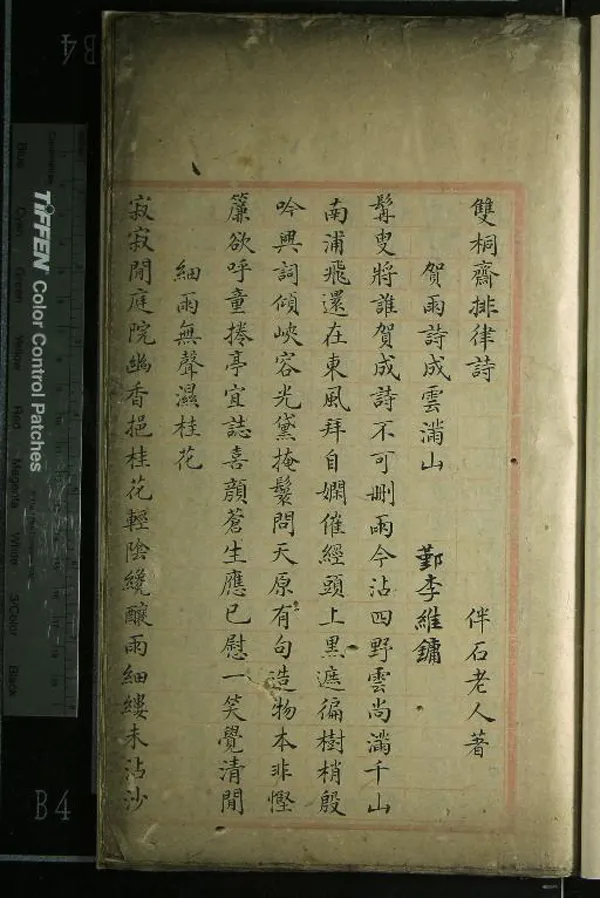 雙桐齋排律詩 伴石老人著
賀雨詩成雲滿山 鄞李維鏞
髯叟將誰賀成詩不可刪雨今沾四野雲尚滿千山
南浦飛還在東風拜自嫻催經頭上黑遮徧樹梢殷
吟興詞傾峽容光黛掩鬟問天原有句造物本非慳
簾欲呼童捲亭宜誌喜顏蒼生應已慰一笑覺清閒
細雨無聲濕桂花
寂寂閒庭院幽香挹桂花輕陰纔釀雨細縷未沾沙
TIFFEN Color Control Patches
Blue Cyan Green Yellow Red Magenta White 3/Color Black
B4
B4